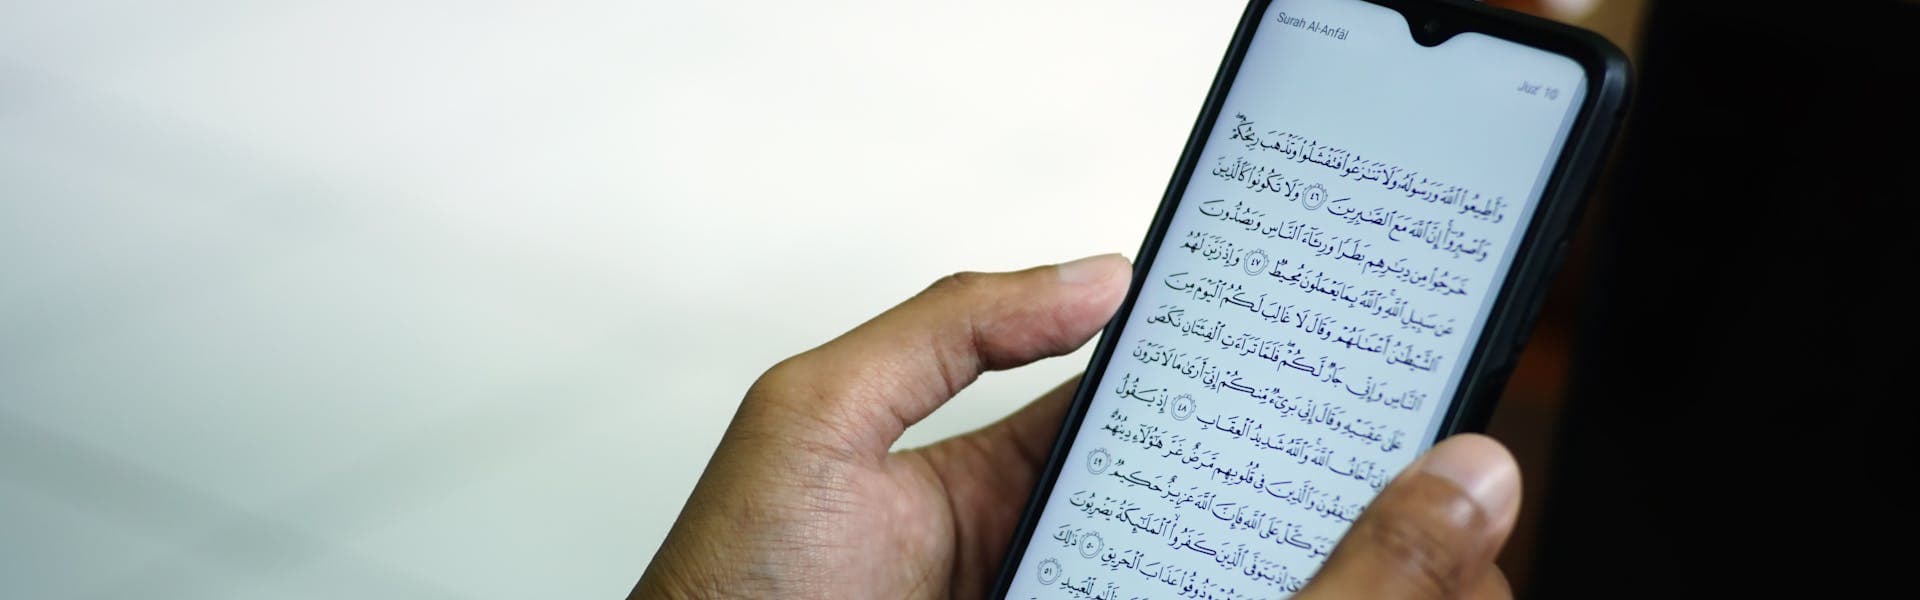 Surah Al-Anfâl
Juz' 10
وَأَطِيعُوا۟ ٱللَّهَ وَرَسُولَهُۥ وَلَا تَنَـٰزَعُوا۟ فَتَفْشَلُوا۟ وَتَذْهَبَ رِيحُكُمْ ۖ
وَٱصْبِرُوٓا۟ ۚ إِنَّ ٱللَّهَ مَعَ ٱلصَّـٰبِرِينَ ٤٦ وَلَا تَكُونُوا۟ كَٱلَّذِينَ
خَرَجُوا۟ مِن دِيَـٰرِهِم بَطَرًا وَرِئَآءَ ٱلنَّاسِ وَيَصُدُّونَ
عَن سَبِيلِ ٱللَّهِ ۚ وَٱللَّهُ بِمَا يَعْمَلُونَ مُحِيطٌ ٤٧ وَإِذْ زَيَّنَ لَهُمُ
ٱلشَّيْطَـٰنُ أَعْمَـٰلَهُمْ وَقَالَ لَا غَالِبَ لَكُمُ ٱلْيَوْمَ مِنَ
ٱلنَّاسِ وَإِنِّى جَارٌ لَّكُمْ ۖ فَلَمَّا تَرَآءَتِ ٱلْفِئَتَانِ نَكَصَ
عَلَىٰ عَقِبَيْهِ وَقَالَ إِنِّى بَرِىٓءٌ مِّنكُمْ إِنِّىٓ أَرَىٰ مَا لَا تَرَوْنَ
إِنِّىٓ أَخَافُ ٱللَّهَ ۚ وَٱللَّهُ شَدِيدُ ٱلْعِقَابِ ٤٨ إِذْ يَقُولُ
وَٱلَّذِينَ فِى قُلُوبِهِم مَّرَضٌ غَرَّ هَـٰٓؤُلَآءِ دِينُهُمْ ۗ
عَلَى ٱللَّهِ فَإِنَّ ٱللَّهَ عَزِيزٌ حَكِيمٌ ٤٩
إِذْ يَتَوَفَّى ٱلَّذِينَ كَفَرُوا۟ ۙ ٱلْمَلَـٰٓئِكَةُ يَضْرِبُونَ
وَذُوقُوا۟ عَذَابَ ٱلْحَرِيقِ ٥٠ ذَٰلِكَ
لِّلْعَبِيدِ ٥١